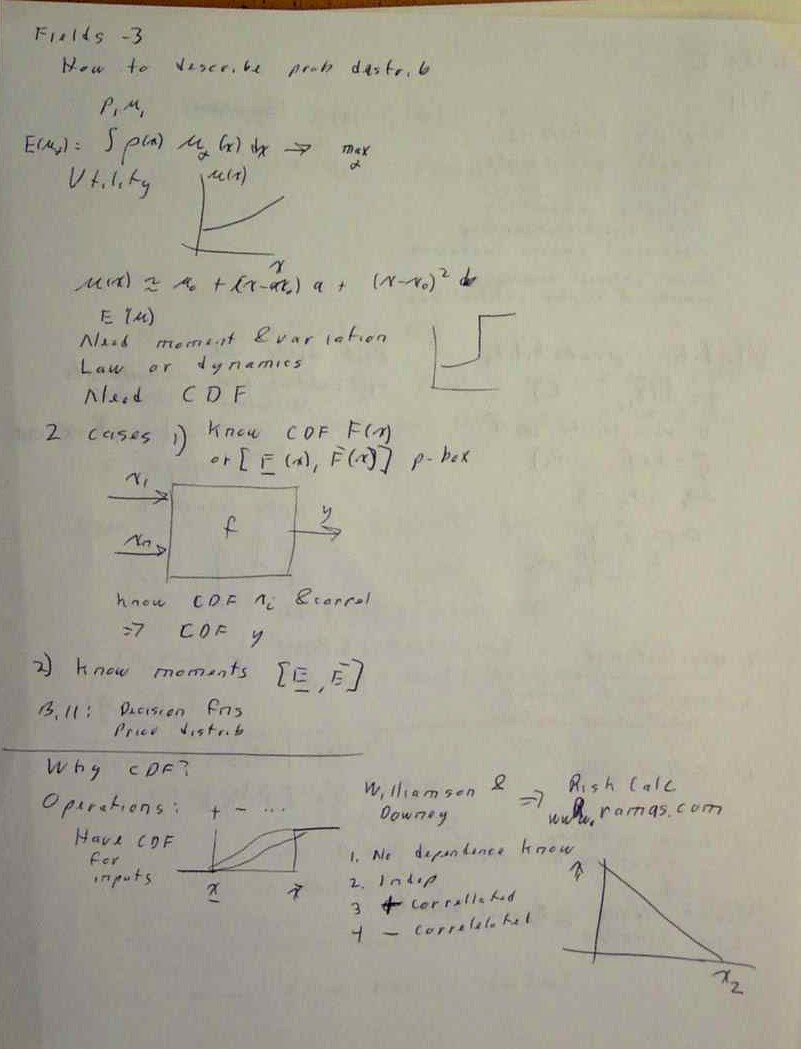 Fields -3
How to describe prob distrib
P, u,
E(u_α) = ∫ρ(x) u_α(x) dx → max α
Utility
u(x)
x
u(x) ≃ u₀ + (x-x₀) a + (x-x₀)²
E(u)
Need moment & variation
Law or dynamics
Need CDF
2 cases 1) Know CDF F(x)
or [F̲(x), F̄(x)] p-box
x₁
f
y
xₙ
know CDF xᵢ & correl
⇒ CDF y
2) know moments [E̲, Ē]
Bill: Decision fns
Price distrib
Why CDF?
Operations: + - ...
Have CDF
for
inputs
x̲ x̄
Williamson & ⇒ Risk Calc
Downey www.ramas.com
1. No dependence know
2. Indep
3 + correllated
4 - correlelated
x₂